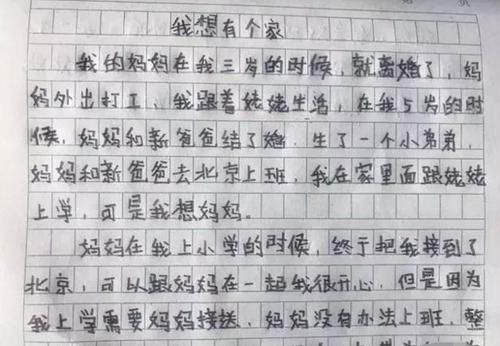 我想有个家
我的妈妈在我三岁的时候，就离婚了，妈
妈外出打工，我跟着姥姥生活，在我5岁的时
候，妈妈和新爸爸结了婚，生了一个小弟弟，
妈妈和新爸爸去北京上班，我在家里面跟姥姥
上学，可是我想妈妈。
妈妈在我上小学的时候，终于把我接到了
北京，可以跟妈妈在一起我很开心，但是因为
我上学需要妈妈接送，妈妈没有办法上班，整